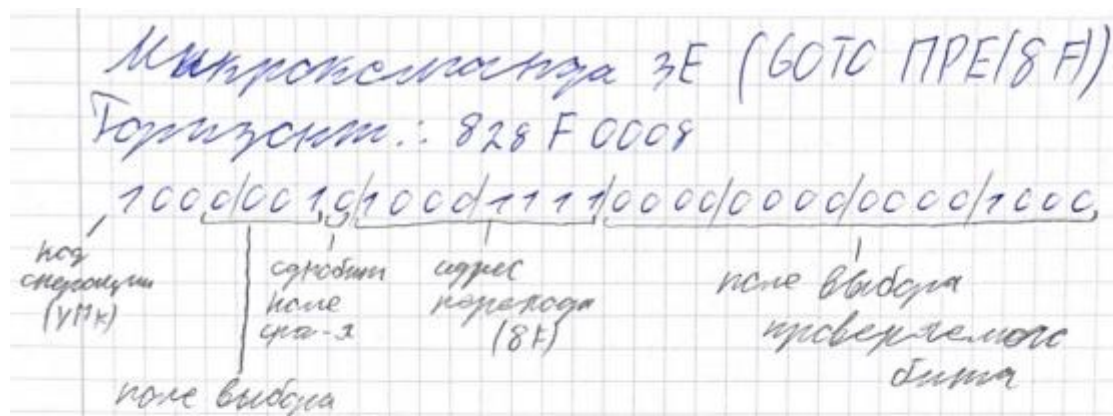 Микрокоманда 3E (GOTO ПРЕ(8F))
Горизонт.: 828F 0008
1000/0010/1000/1111/0000/0000/0000/1000
код операции (УМК)
однобит. поле сра-я
адрес перехода (8F)
поле выбора проверяемого бита
поле выбора